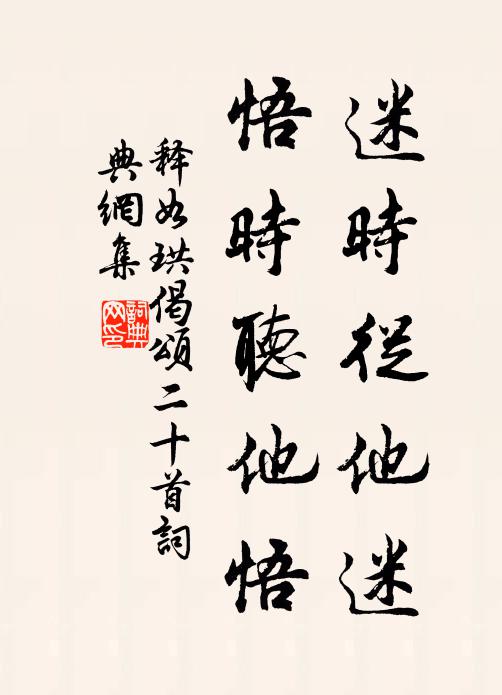 迷時從他迷
悟時聽他悟
释如珙偈頌二十首詞
典網集
詞典
网印